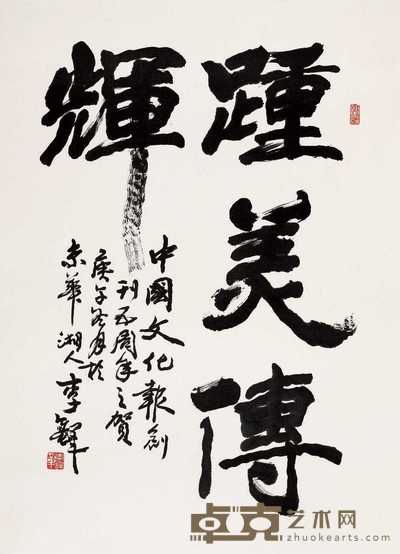 踵美傳
輝
中國文化報創
刊五周年之賀
庚午冬月於
京華湖人李鐸
卓克艺术网
zhuokearts.com